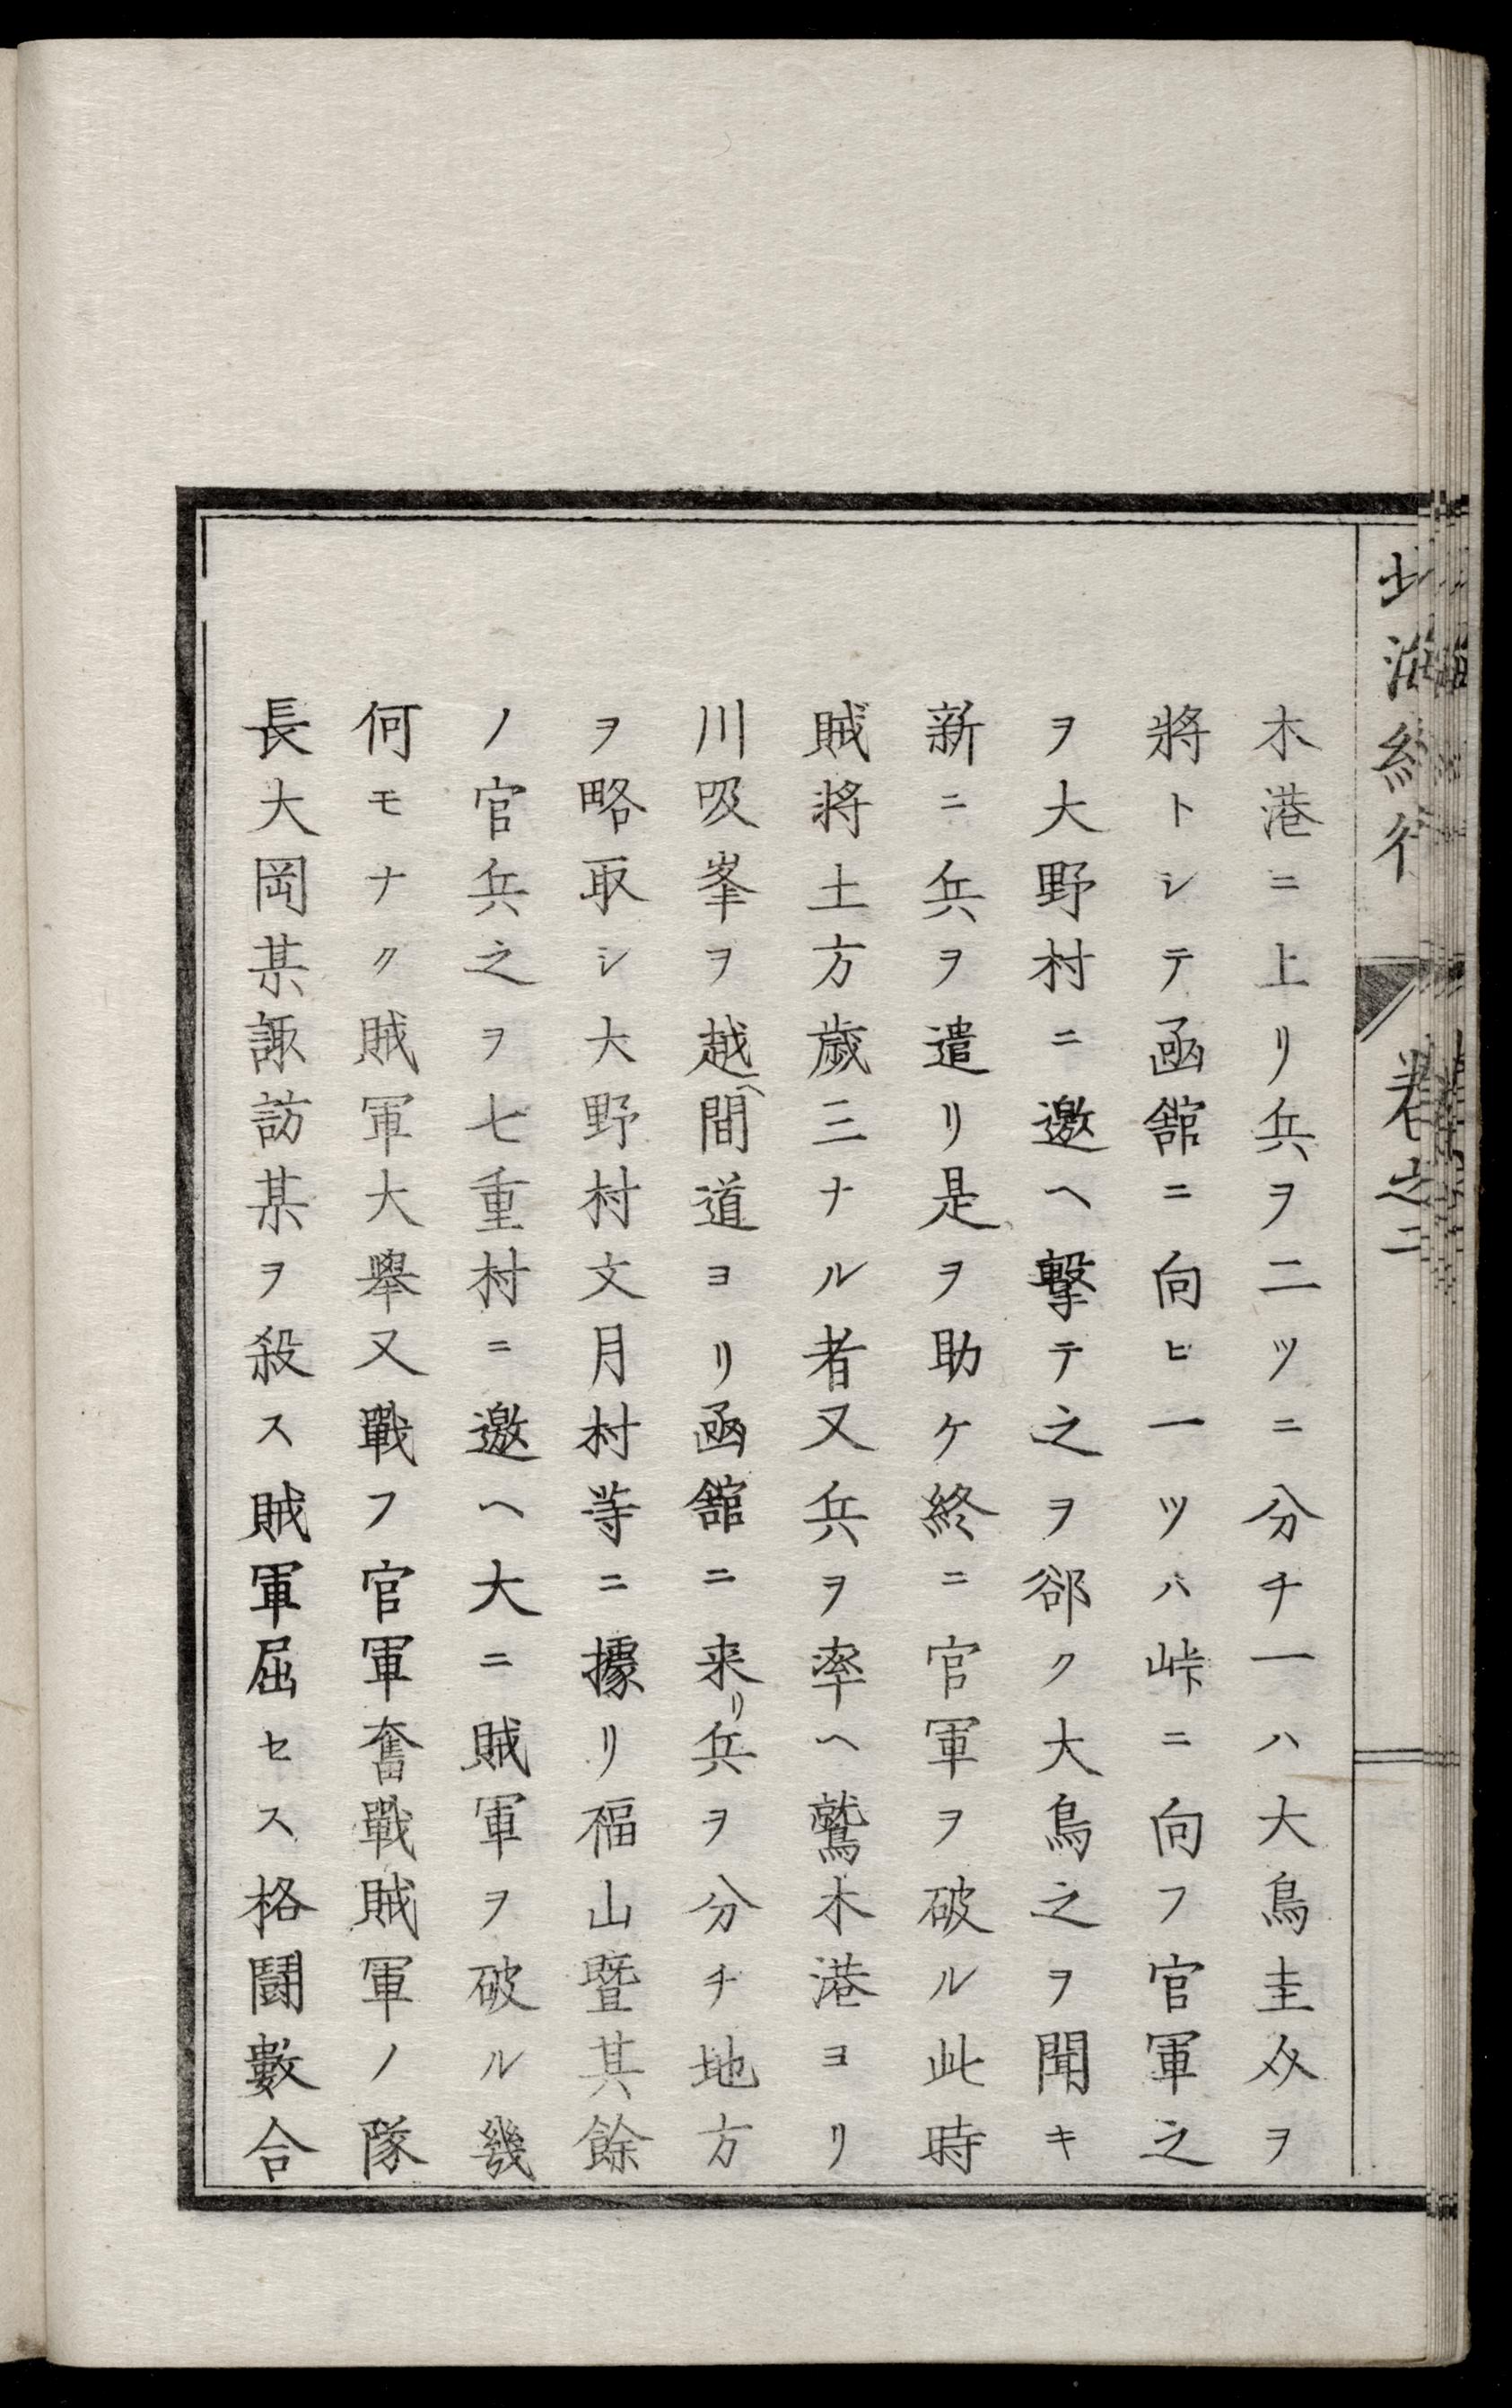 北海紀行
卷之二
木港ニ上リ兵ヲ二ツニ分チ一ハ大鳥圭介ヲ
將トシテ函舘ニ向ヒ一ツハ峠ニ向フ官軍之
ヲ大野村ニ邀ヘ擊テ之ヲ郤ク大鳥之ヲ聞キ
新ニ兵ヲ遣リ是ヲ助ケ終ニ官軍ヲ破ル此時
賊將土方歲三ナル者又兵ヲ率ヘ鷲木港ヨリ
川吸峯ヲ越ヘ間道ヨリ函舘ニ来リ兵ヲ分チ地方
ヲ略取シ大野村文月村等ニ據リ福山曁其餘
ノ官兵之ヲ七重村ニ邀ヘ大ニ賊軍ヲ破ル幾
何モナク賊軍大擧又戰フ官軍奮戰賊軍ノ隊
長大岡某諏訪某ヲ殺ス賊軍屈セス格鬪數合